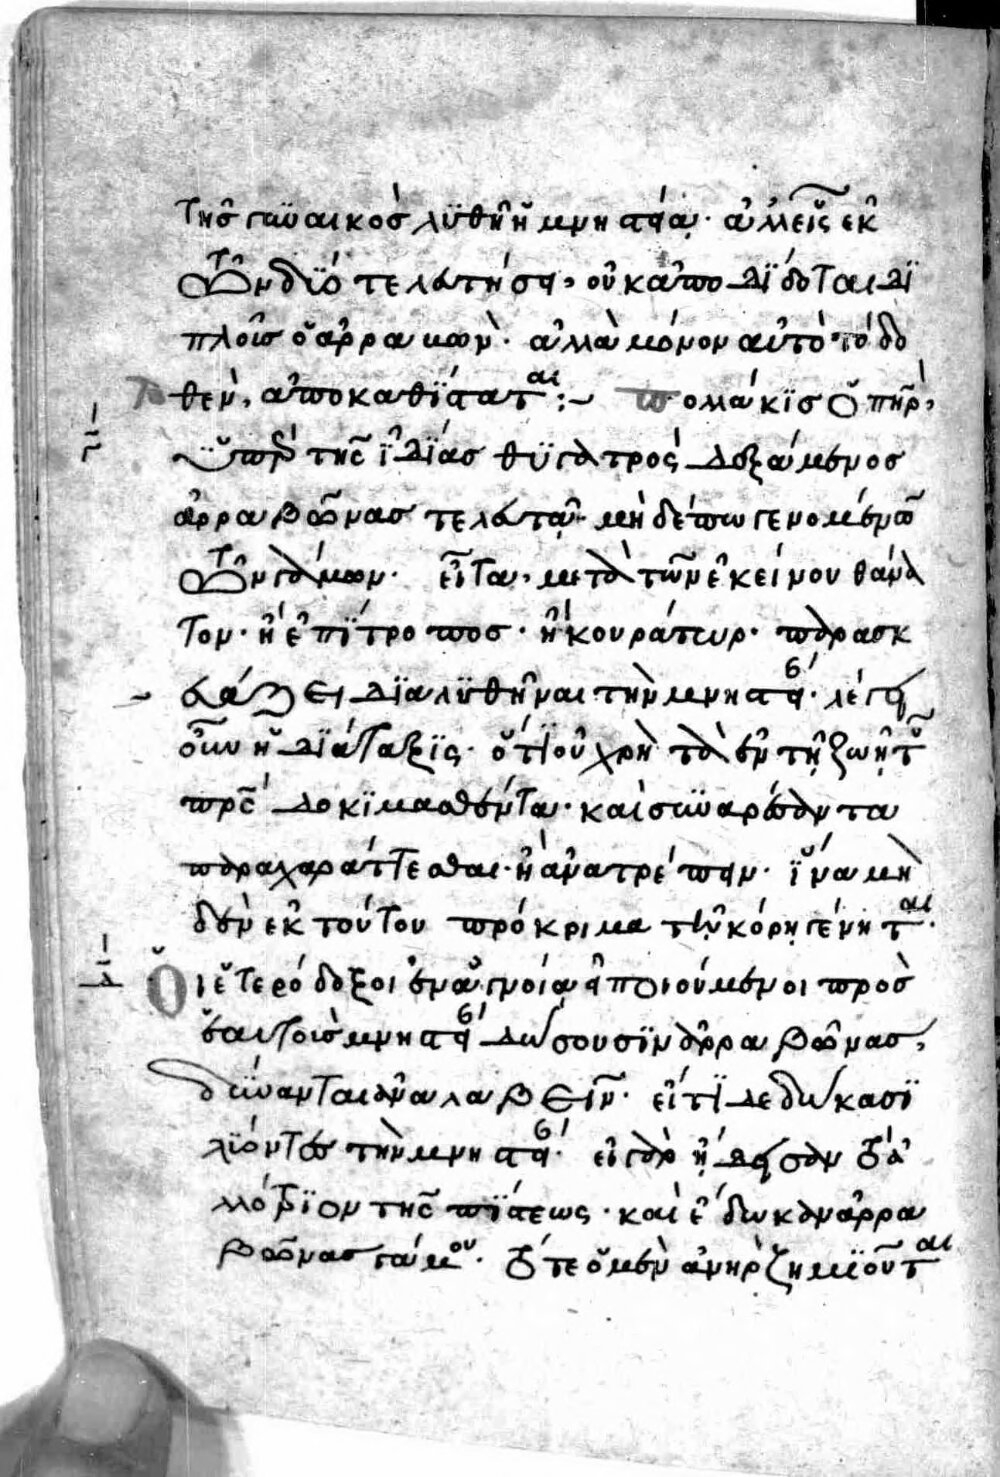 τῆς γυναικὸς λυθῆ ἡ μνηστεία· ἀλλ' εἰς ἐκ
τῶν δύο τελευτήσει, οὐκ ἀποδίδοται δι
πλοῖς ὁ ἀρραβὼν· ἀλλὰ μόνον αὐτὸ τὸ δο
θὲν, ἀποκαθίσταται:~ πολλάκις ὁ πατὴρ,
ιγ
ὑπὲρ τῆς ἰδίας θυγατρὸς δεξάμενος
ἀρραβῶνας τελευτᾷ· μὴ δέπω γενομένων
τῶν γάμων· εἶτα, μετὰ τὸν ἐκείνου θάνα
τον· ἢ ἐπίτροπος· ἢ κουράτωρ· παρασκ
ευάζει διαλυθῆναι τὴν μνηστείαν· λέγει
οὖν ἡ διάταξις· ὅτι οὐ χρὴ τὰ ἐν τῇ ζωῇ τοῦ
πατρὸς δοκιμασθέντα· καὶ συναρέσαντα
παραχαράττεσθαι· ἢ ἀνατρέπειν· ἵνα μη
δὲν ἐκ τούτου πρόκριμα τῇ κόρῃ γένηται·
ιδ
Οἱ ἑτερόδοξοι ἐν ἀγνοίᾳ ποιούμενοι πρὸς
ἑαυτοὺς μνηστείαν δώσουσιν ἀρραβῶνας,
δύνανται ἀναλαβεῖν· εἴ τι δεδώκασι
λύοντες τὴν μνηστείαν· εἰ γὰρ ᾔδεισαν τὸ ἀ
λλότριον τῆς πίστεως· καὶ ἔδωκαν ἀρρα
βῶνας γάμου· τότε ὁ μὲν ἀνὴρ ζημιοῦται